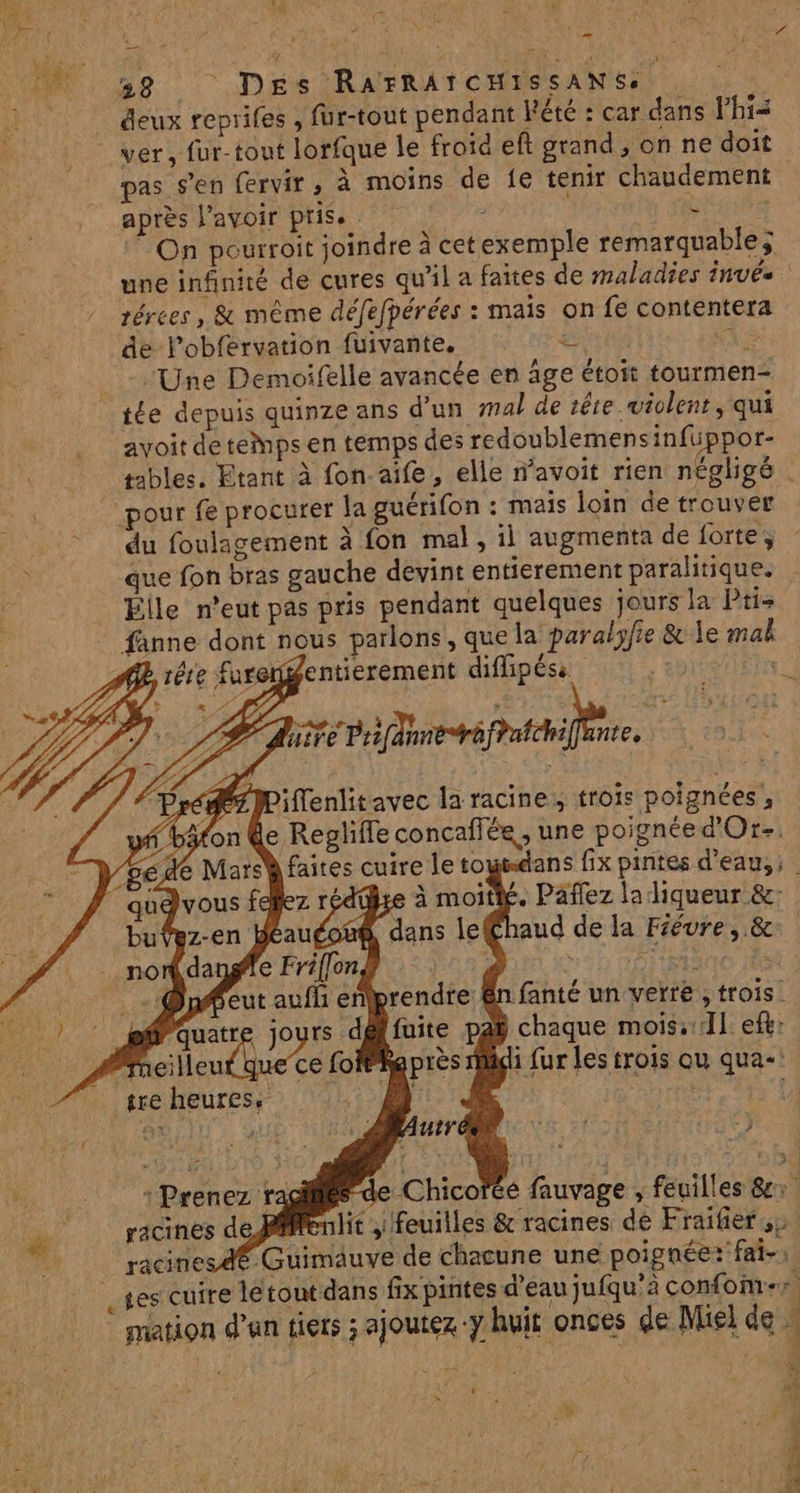 38 DES RAFRAICHISSANS.
deux reprises, sur-tout pendant l'été : car dans l'hi-
ver, sur-tout lorsque le froid est grand, on ne doit
pas s'en servir, à moins de se tenir chaudement
après l'avoir prise.
On pourroit joindre à cet exemple remarquable,
une infinité de cures qu'il a faites de maladies invé-
térées, & même désespérées : mais on se contentera
de l'observation suivante.
Une Demoiselle avancée en âge étoit tourmen-
tée depuis quinze ans d'un mal de tête violent, qui
avoit de temps en temps des redoublemens insuppor-
tables. Etant à son aise, elle n'avoit rien négligé
pour se procurer la guérison : mais loin de trouver
du soulagement à son mal, il augmenta de sorte,
que son bras gauche devint entierement paralitique.
Elle n'eut pas pris pendant quelques jours la Pti-
sanne dont nous parlons, que la paralysie & le mal
de tête furent entierement dissipés.
Autre Ptisanne rafraichissante.
Prenez Pissenlit avec la racine, trois poignées,
un bâton de Reglisse concassée, une poignée d'Or-
ge de Mars faites cuire le tout dans six pintes d'eau,
que vous ferez réduire à moitié. Passez la liqueur &
buvez-en beaucoup, dans le chaud de la Fiévre, &
non dans le Frisson.
On peut aussi en prendre en santé un verre, trois
ou quatre jours de suite par chaque mois. Il est
meilleur que ce soit après midi sur les trois ou qua-
tre heures.
Autre.
Prenez racines de Chicorée sauvage, feuilles &
racines de Pissenlit, feuilles & racines de Fraisier,
racines de Guimauve de chacune une poignée : fai-
tes cuire le tout dans six pintes d'eau jusqu'à consom-
mation d'un tiers ; ajoutez-y huit onces de Miel de